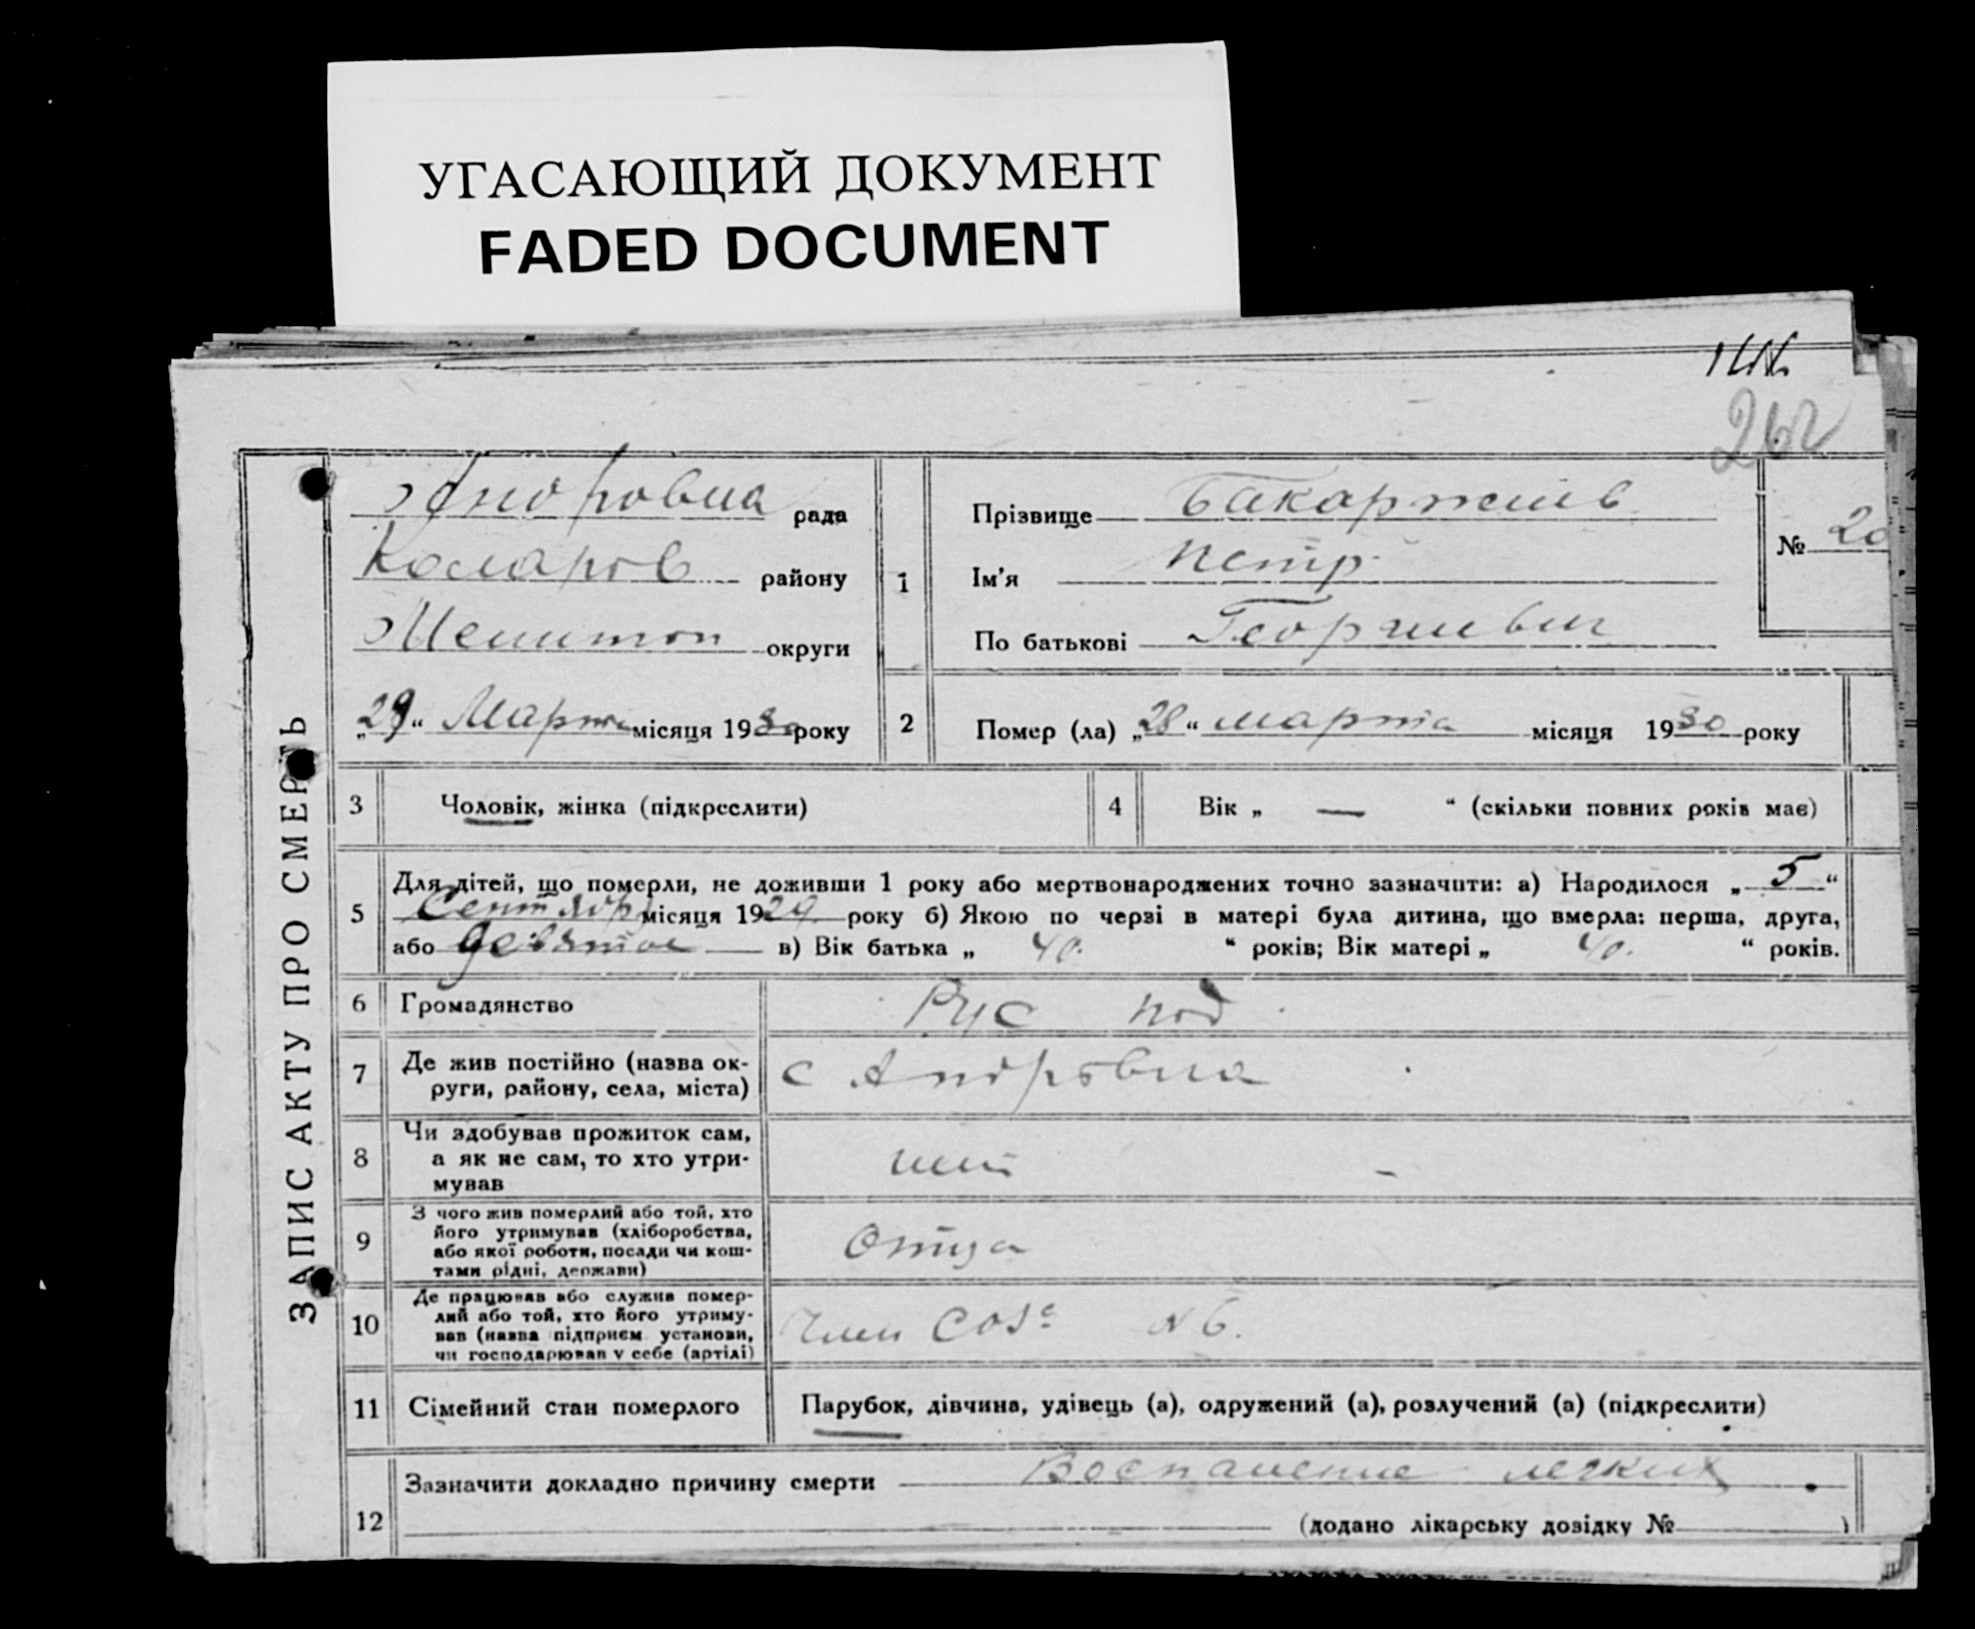 УГАСАЮЩИЙ ДОКУМЕНТ
FADED DOCUMENT
262
ЗАПИС АКТУ ПРО СМЕРТЬ
Андровка рада
Коларов району
Мелитоп округи
„29“ Марта місяця 1930 року
1
Прізвище Бакаржиев
Ім'я Петр
По батькові Георгиевич
№ 20
2 Помер (ла) „28“ марта місяця 1930 року
3 Чоловік, жінка (підкреслити)
4 Вік „ — “ (скільки повних років має)
5 Для дітей, що померли, не доживши 1 року або мертвонароджених точно зазначити: а) Народилося „5“
Сентября місяця 1929 року б) Якою по черзі в матері була дитина, що вмерла: перша, друга,
або девятое в) Вік батька „ 40. “ років; Вік матері „ 40. “ років.
6 Громадянство Рус под
7 Де жив постійно (назва ок-
руги, району, села, міста) с Андровка
8 Чи здобував прожиток сам,
а як не сам, то хто утри-
мував нет -
9 З чого жив померлий або той, хто
його утримував (хліборобства,
або якої роботи, посади чи кош-
тами рідні, держави) Отца
10 Де працював або служив помер-
лий або той, хто його утриму-
вав (назва підприєм. установи,
чи господарював у себе (артілі) Член СОЗа N 6.
11 Сімейний стан померлого Парубок, дівчина, удівець (а), одружений (а), розлучений (а) (підкреслити)
12 Зазначити докладно причину смерти Воспаление легких
(додано лікарську довідку № )